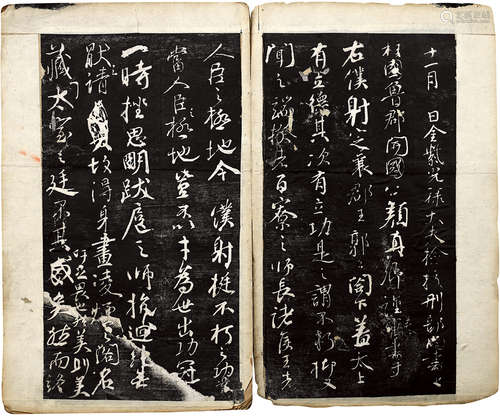 十一月 日金紫光祿大夫檢校刑部尚書上
柱國魯郡開國公顏真卿謹奉書于
右僕射定襄郡王郭公閤下蓋太上
有立德其次有立功是之謂不朽抑又
聞之端揆者百寮之師長諸侯王者
人臣之極地今 僕射挺不朽之功業
當人臣極地豈不以才為世出功冠
一時挫思明跋扈之師抗迴紇無
猒請 故得身畫凌煙之閣名
藏太室之廷 吁足畏 美則美 然而終